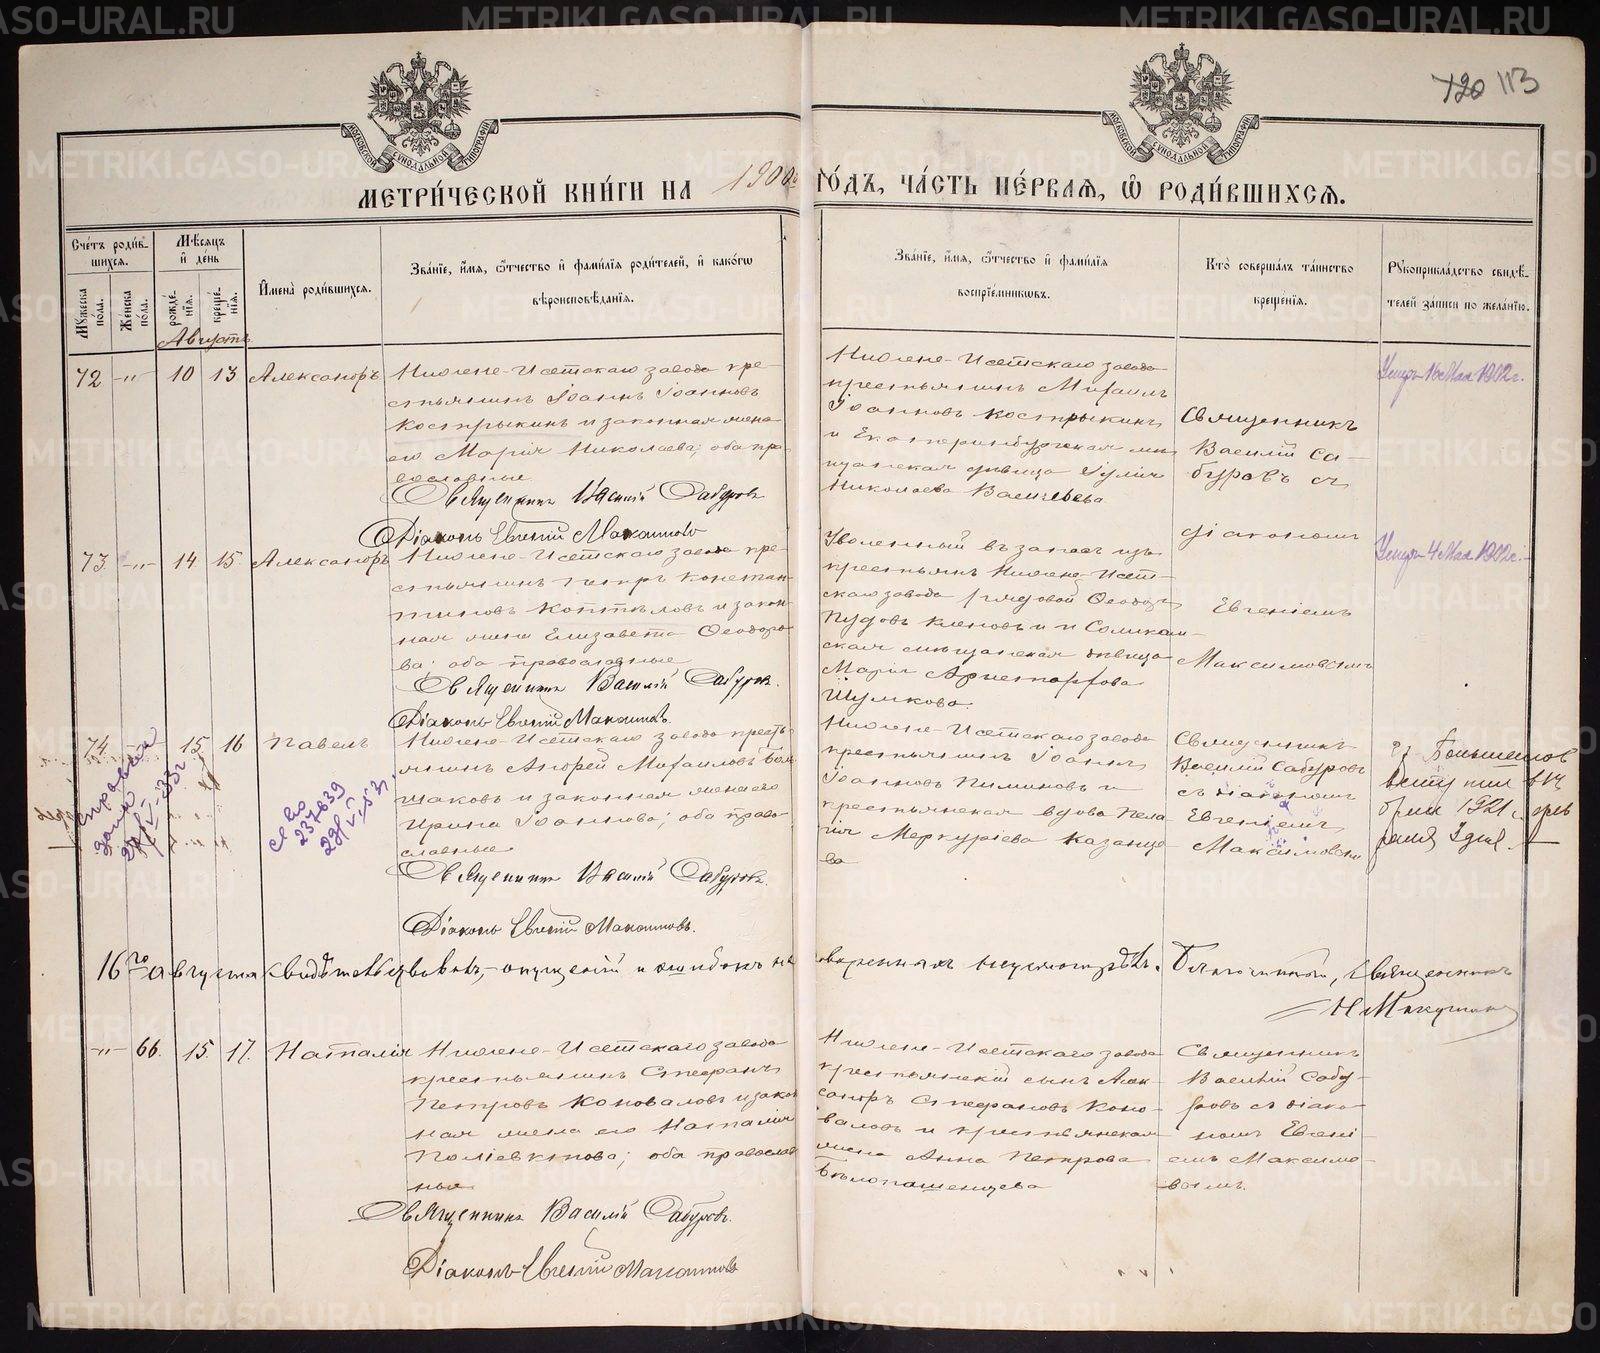 120 113
МОСКОВСКОЙ СѴНОДАЛЬНОЙ ТИПОГРАФІИ
МОСКОВСКОЙ СѴНОДАЛЬНОЙ ТИПОГРАФІИ
МЕТРИ́ЧЕСКОЙ КНИ́ГИ НА 1900й ГО́ДЪ, ЧА́СТЬ ПЕ́РВАЯ, Ѡ РОДИ́ВШИХСЯ.
Сче́тъ роди́в-
шихся.
Мꙋжеска по́ла.
Женска по́ла.
Мѣ́сяцъ и де́нь
рожде́нїя.
креще́нїя.
И҆мена̀ роди́вшихся.
Зва́нїе, и҆́мя, ѻ҆́тчество и҆ фами́лїя роди́телей, и҆ како́гѡ
вѣроисповѣ́данїя.
Зва́нїе, и҆́мя, ѻ҆́тчество и҆ фами́лїя
воспрїе́мникѡвъ.
Кто̀ соверша́лъ та́инство
креще́нїя.
Рꙋкоприкла́дство свидѣ́-
телей за́писи по жела́нїю.
Августъ
72 -"- 10 13 Александръ
Нижне-Исетскаго завода кре-
стьянинъ Іоаннъ Іоанновъ
Кострыкинъ и законная жена
его Марія Николаева; оба пра-
вославные
Священникъ Василій Сабуровъ
Діаконъ Евгеній Максимовъ
Нижне-Исетскаго завода
крестьянинъ Михаилъ
Іоанновъ Кострыкинъ
и Екатеринбургская мѣ-
щанская дѣвица Юлія
Николаева Васильева
Священникъ
Василій Са-
буровъ съ
діакономъ
Евгеніемъ
Максимовымъ
Умеръ 16 Мая 1902 г.
73 -"- 14 15 Александръ
Нижне-Исетскаго завода кре-
стьянинъ Петръ Констан-
тиновъ Коптѣловъ и закон-
ная жена Елизавета Ѳеодоро-
ва; оба православные
Священникъ Василій Сабуровъ.
Діаконъ Евгеній Максимовъ.
Уволенный въ запасъ изъ
крестьянъ Нижне-Исет-
скаго завода рядовой Ѳеодоръ
Пудовъ Кленовъ и Соликам-
ская мѣщанская дѣвица
Марія Аристархова
Шумкова.
Умеръ 4 Мая 1902 г.
74 15 16 Павелъ
Нижне-Исетскаго завода кресть-
янинъ Андрей Михаиловъ Боль-
шаковъ и законная жена его
Ирина Іоаннова; оба право-
славные
Священникъ Василій Сабуровъ.
Діаконъ Евгеній Максимовъ.
Нижне-Исетскаго завода
крестьянинъ Іоаннъ
Іоанновъ Пиминовъ и
крестьянская вдова Пела-
гія Меркуріева Казанце-
ва
Священникъ
Василій Сабуровъ
съ діакономъ
Евгеніемъ
Максимовымъ
справка
св во
237639
16го августа свидѣтельствовалъ,- опущеній и ошибокъ не
Благочинный, Священникъ
-"- 66. 15. 17. Наталія
Нижне-Исетскаго завода
крестьянинъ Стефанъ
Петровъ Коноваловъ и закон-
ная жена его Наталія
Поліевктова; оба православ-
ные
Священникъ Василій Сабуровъ.
Діаконъ Евгеній Максимовъ
Нижне-Исетскаго завода
крестьянскій сынъ Алек-
сандръ Стефановъ Коно-
валовъ и крестьянская
жена Анна Петрова
Бѣлопашенцева
Священникъ
Василій Сабу-
ровъ съ діако-
номъ Евгені-
емъ Максимо-
вымъ.
METRIKI.GASO-URAL.RU